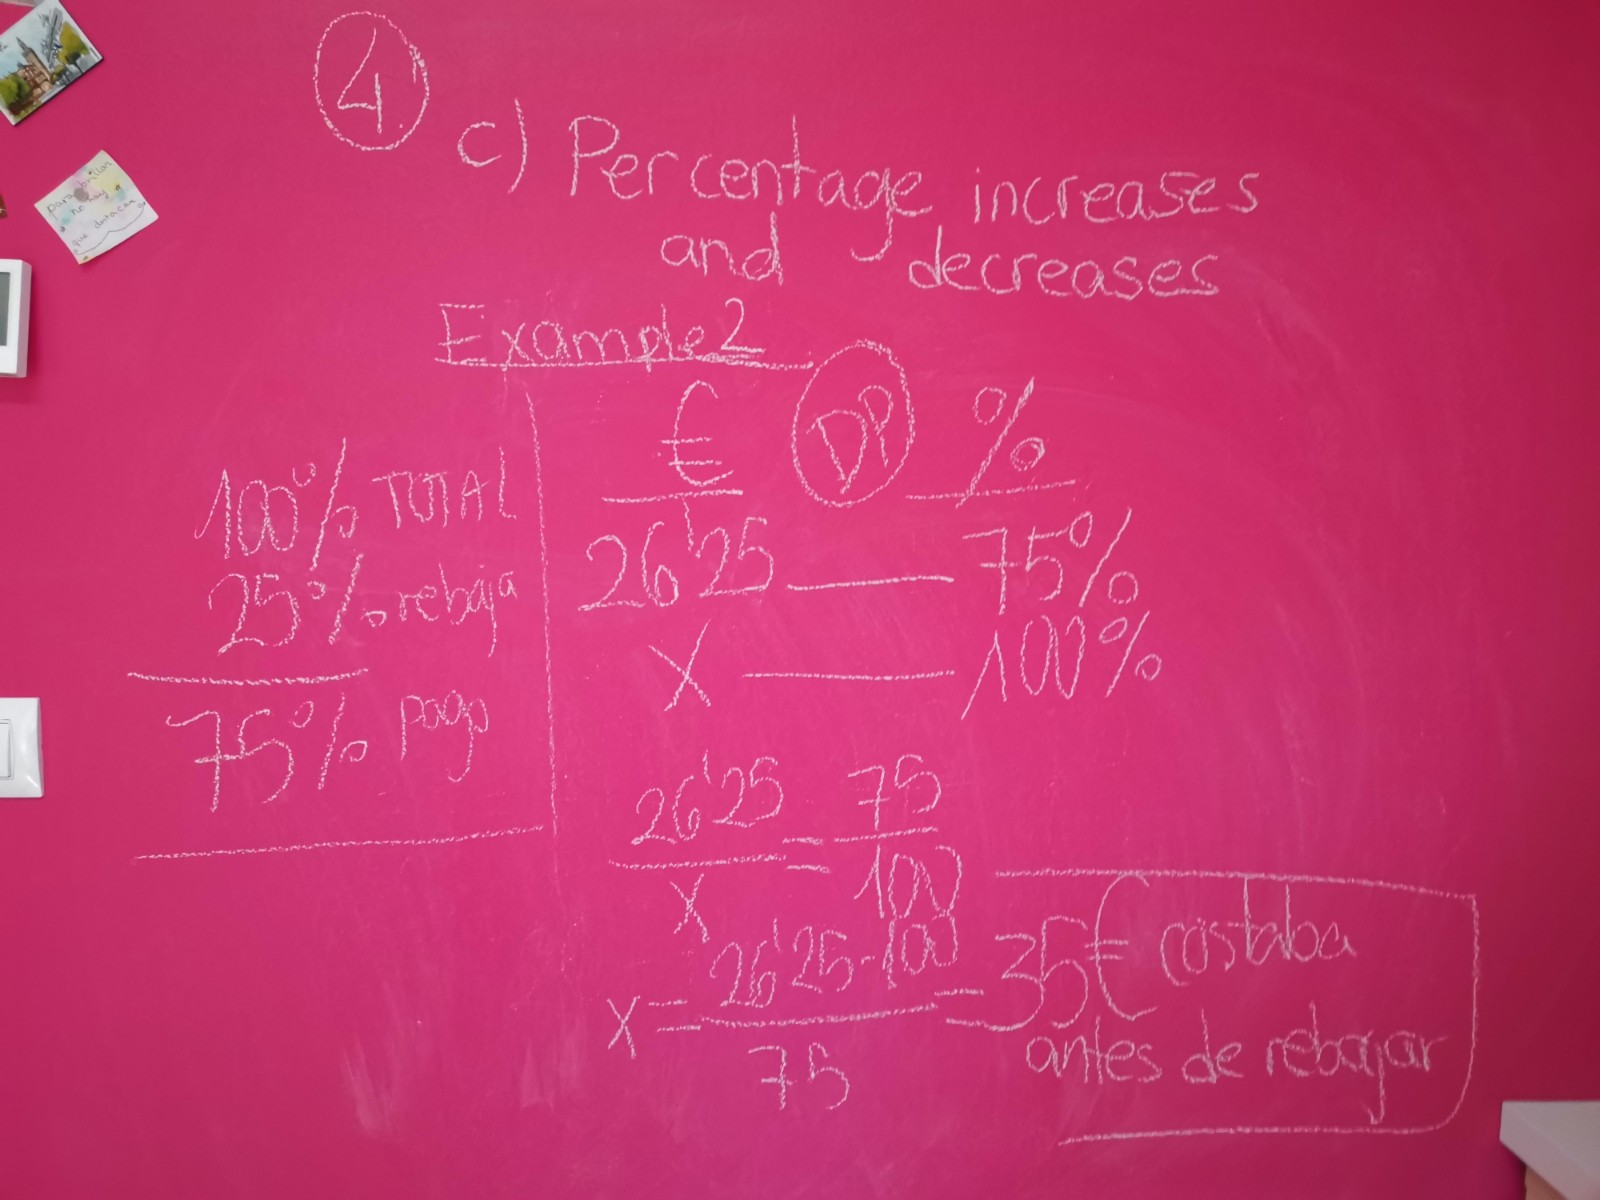 4
c) Percentage increases
and decreases
Example 2
100% TOTAL
25% rebaja
75% pago
€ DP %
26'25 — 75%
x — 100%
26'25 = 75
x 100
x = 26'25 · 100 = 35€ costaba
75
antes de rebajar
para brillar
no hay
que